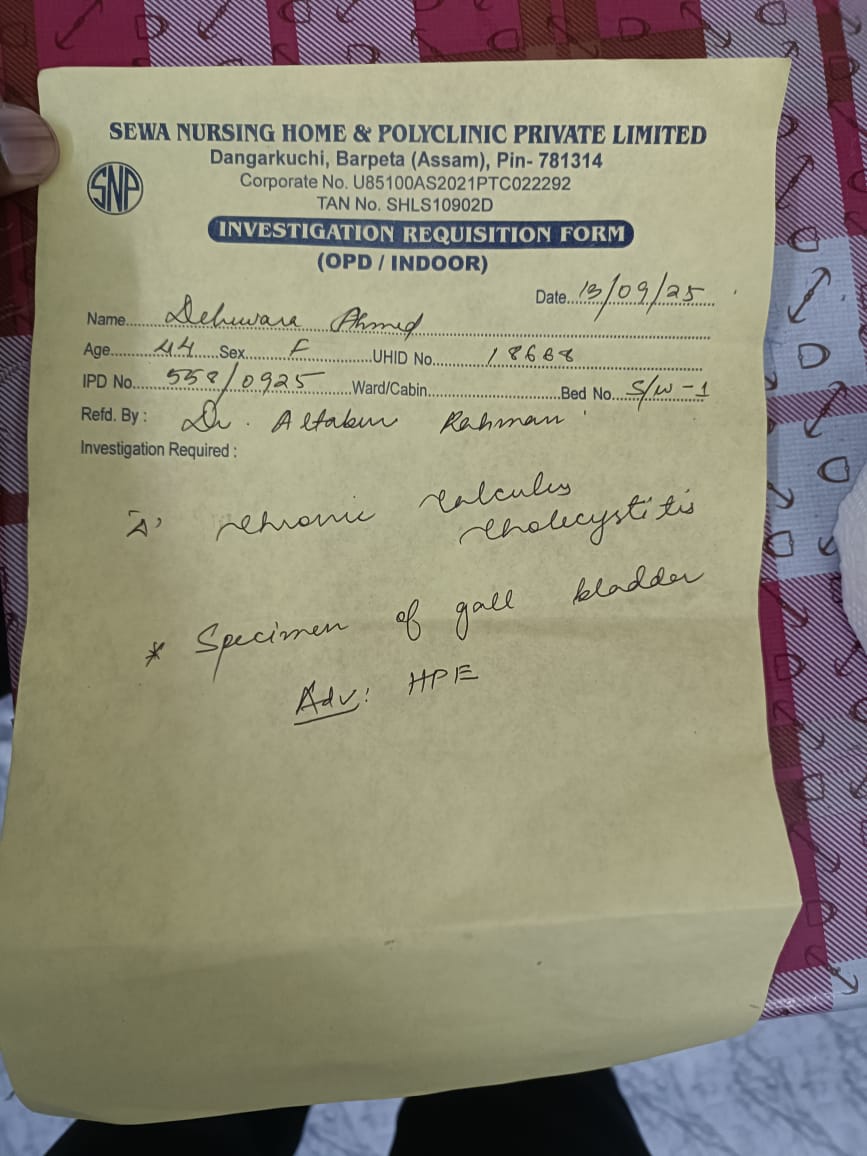 SEWA NURSING HOME & POLYCLINIC PRIVATE LIMITED
Dangarkuchi, Barpeta (Assam), Pin- 781314
SNP
Corporate No. U85100AS2021PTC022292
TAN No. SHLS10902D
INVESTIGATION REQUISITION FORM
(OPD / INDOOR)
Date..13/09/25
Name Ahmed
Age 44 Sex F UHID No. 18668
IPD No. 558/0925 Ward/Cabin Bed No. S/W-1
Refd. By : Dr. Rahman
Investigation Required :
chronic calculus
cholecystitis
* Specimen of gall bladder
Adv: HPE